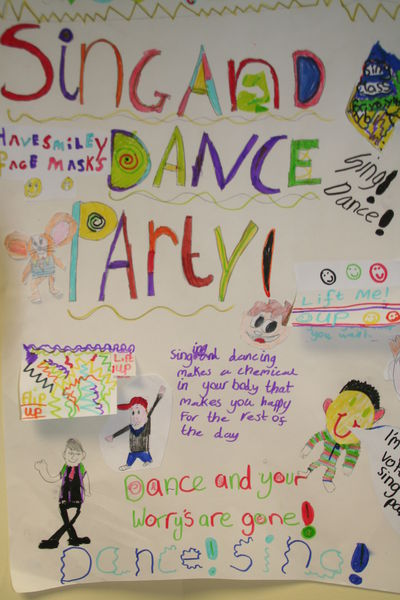 Sing AND
DANCE
PARty!
HAVE SMiLEY
FACE MASKS
Sing!
Dance!
Lift Me!
Lift
up
Flip
up
singing and dancing
makes a chemical
in your body that
makes you happy
for the rest of
the day
Dance and your
worry's are gone!
Dance! Sing!
I'm